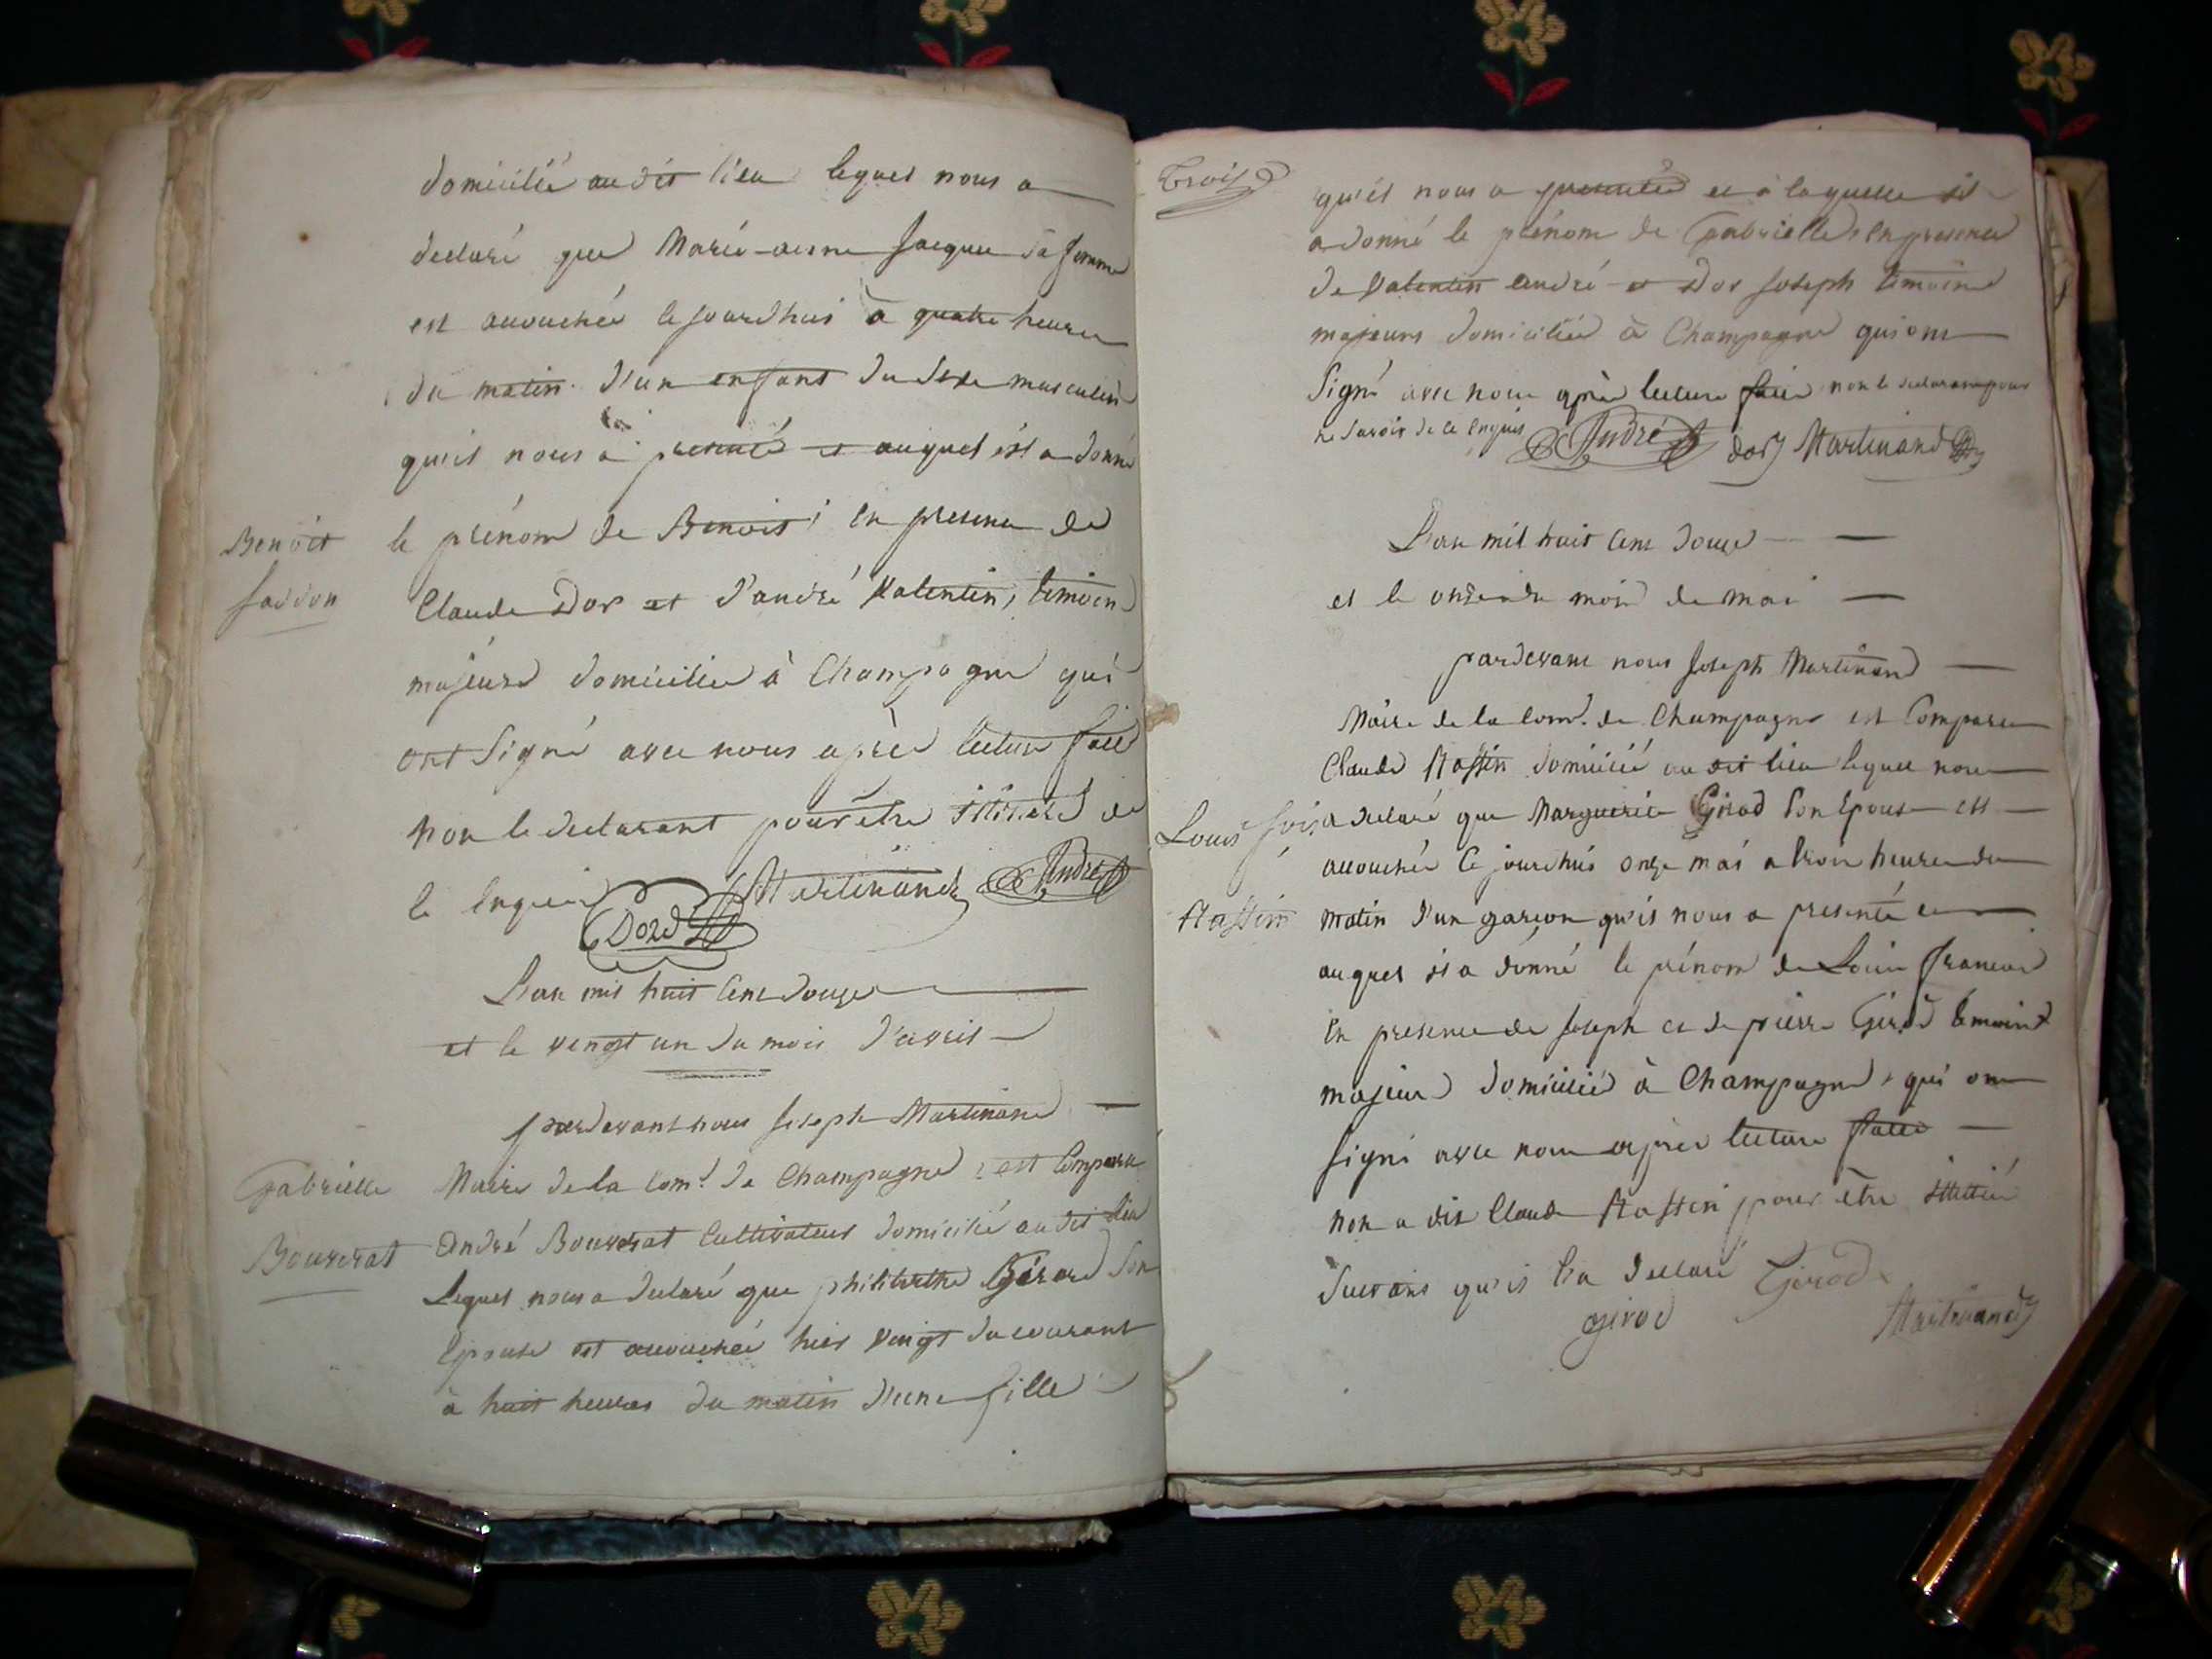 domicilié audit lieu lequel nous a
declaré que Marie-anne Jacques sa femme
est accouchée cejourdhui à quatre heures
du matin d'un enfant du sexe masculin
qu'il nous a presenté et auquel il a donné
Benoit
le prénom de Benoit, en presence de
Claude Dor et d'andré Valentin, témoins
majeurs domiciliés à Champagne qui
ont signé avec nous après lecture faite
non le declarant pour être illiteré de
ce enquis Martinand André
Dord
L'an mil huit cent douze
et le vengt un du mois d'avril
pardevant nous Joseph Martinand
Gabrielle
Maire de la com.e de Champagne, est comparu
Bouvrat
André Bouvrat cultivateur domicilié audit lieu
Lequel nous a declaré que philiberthe Gérard son
Epouse est accouchée hier vingt du courant
à huit heures du matin d'une fille
Trois
qu'il nous a presentée et à laquelle il
a donné le prénom de Gabrielle, en presence
de Valentin andré et Dor Joseph témoins
majeurs domiciliés à Champagne qui ont
Signé avec nous après lecture faite non le declarant pour
ne savoir de ce enquis André dor J Martinand
L'an mil huit cent douze
et le onze du mois de mai
pardevant nous Joseph Martinand
Maire de la com.e de Champagne est comparu
Claude domicilié au dit lieu lequel nous
Louis fois
a declaré que Marguerite Girod son Epouse est
accouchée cejourdhui onze mai a trois heures du
matin d'un garçon qu'il nous a presenté et
auquel il a donné le prénom de Louis françois
en presence de Joseph et de pierre Girod témoins
majeurs domiciliés à Champagne, qui ont
signé avec nous après lecture faite
non a dit Claude pour être illitéré
Suivant qu'il l'a declaré Girod
girod Martinand